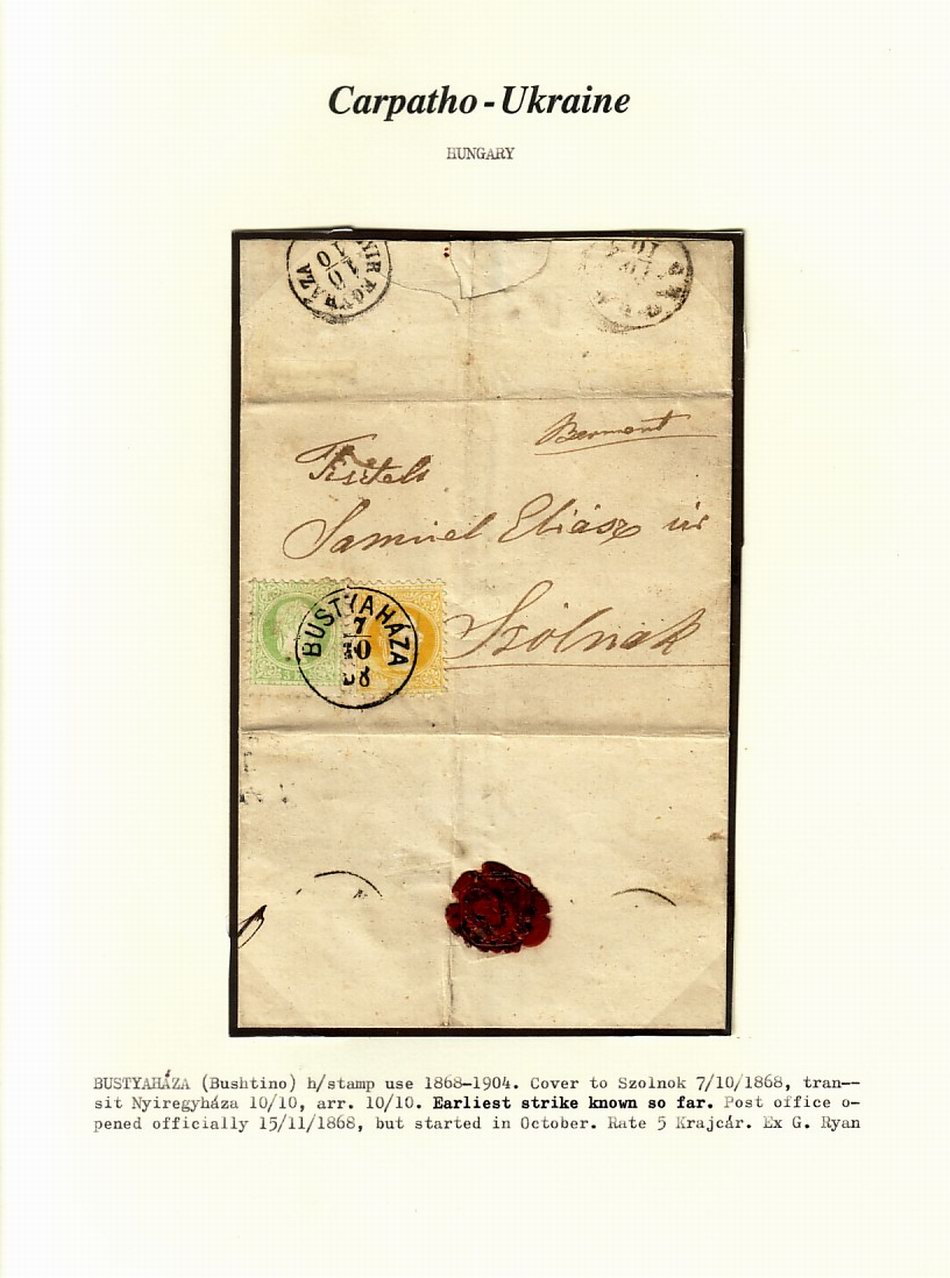 Carpatho-Ukraine
HUNGARY
NYIREGYHÁZA
10
10
10
10
Bermont
Tisztelt
Samuel Eliász úr
Szolnok
BUSTYAHÁZA
7
10
68
BUSTYAHÁZA (Bushtino) h/stamp use 1868-1904. Cover to Szolnok 7/10/1868, tran-
sit Nyiregyháza 10/10, arr. 10/10. Earliest strike known so far. Post office o-
pened officially 15/11/1868, but started in October. Rate 5 Krajcár. Ex G. Ryan